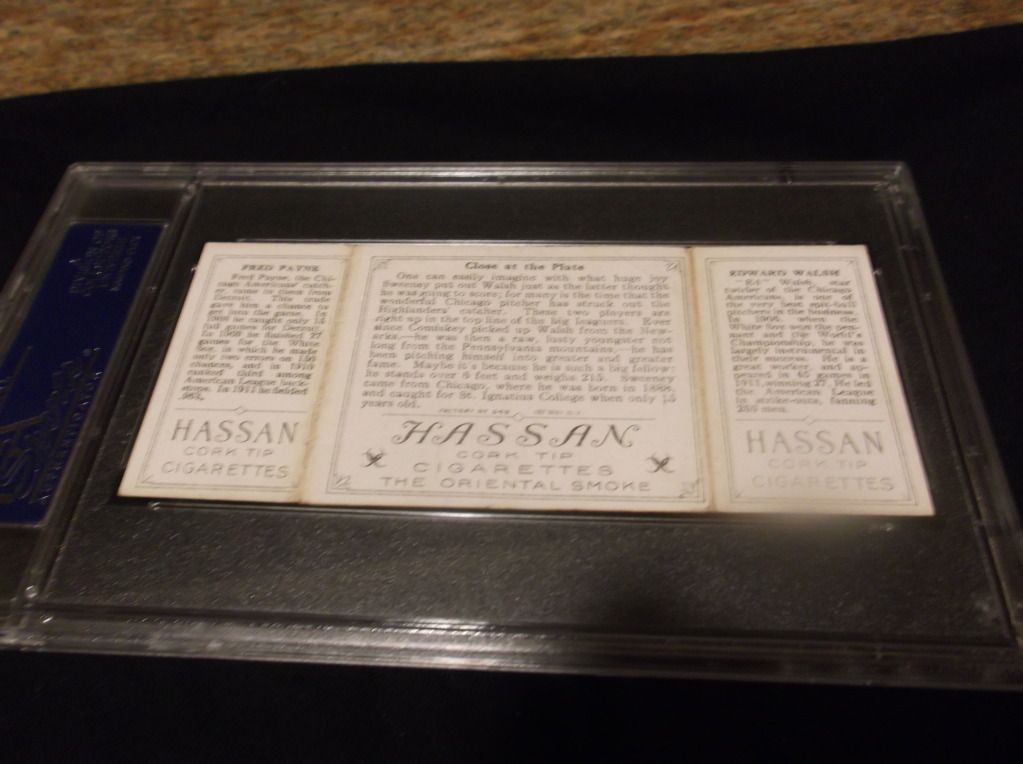 FRED PAYNE
Fred Payne, the Chi-
cago Americans' catch-
er, came to them from
Detroit. This trade
gave him a chance to
get into the game. In
he caught only 15
full games for Detroit.
In 1909 he finished 27
games for the White
Sox, in which he made
only two errors on 150
chances, and in 1910
ranked third among
American League back-
stops. In 1911 he fielded
HASSAN
CORK TIP
CIGARETTES
Close at the Plate
One can easily imagine with what huge joy
Sweeney put out Walsh just as the latter thought
he was going to score; for many is the time that the
wonderful Chicago pitcher has struck out the
Highlanders' catcher. These two players are
right up in the top line of the big leaguers. Ever
since Comiskey picked up Walsh from the New-
arks,—he was then a raw, lusty youngster not
long from the Pennsylvania mountains,—he has
been pitching himself into greater and greater
fame. Maybe it's because he is such a big fellow;
he stands over 6 feet and weighs 215. Sweeney
came from Chicago, where he was born in 1888,
and caught for St. Ignatius College when only 15
years old.
FACTORY
HASSAN
CORK TIP
CIGARETTES
THE ORIENTAL SMOKE
EDWARD WALSH
"Ed" Walsh, star
twirler of the Chicago
Americans, is one of
the very best spit-ball
pitchers in the business.
In 1906, when the
White Sox won the pen-
nant and the World's
Championship, he was
largely instrumental in
their success. He is a
great worker, and ap-
peared in 45 games in
1911, winning 27. He led
the American League
in strike-outs, fanning
255 men.
HASSAN
CORK TIP
CIGARETTES